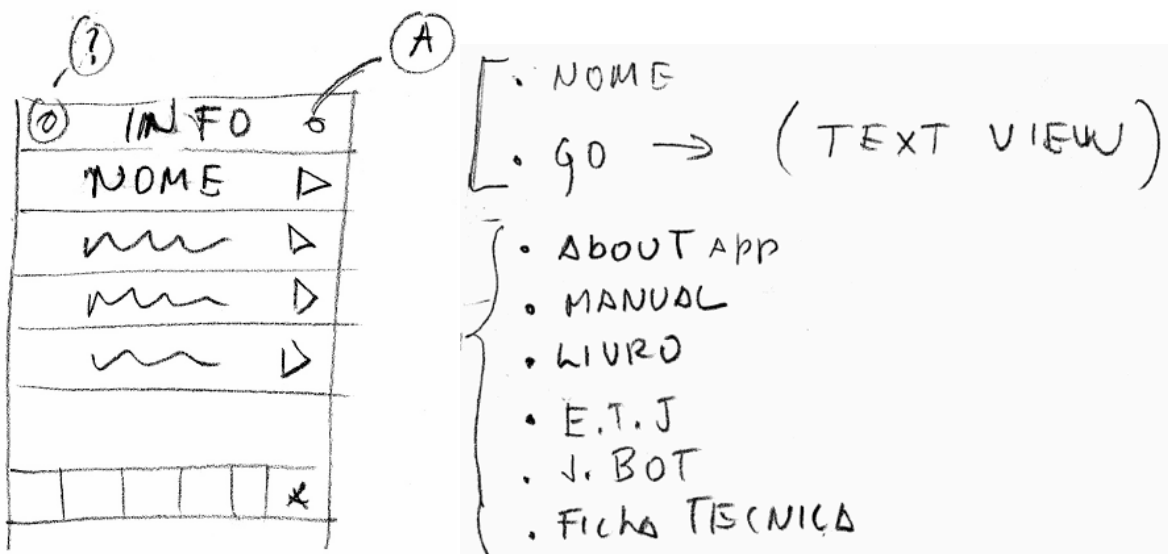 ?
A
INFO
NOME
• NOME
• GO → (TEXT VIEW)
• ABOUT APP
• MANUAL
• LIVRO
• E.T.J
• J. BOT
• FICHA TECNICA